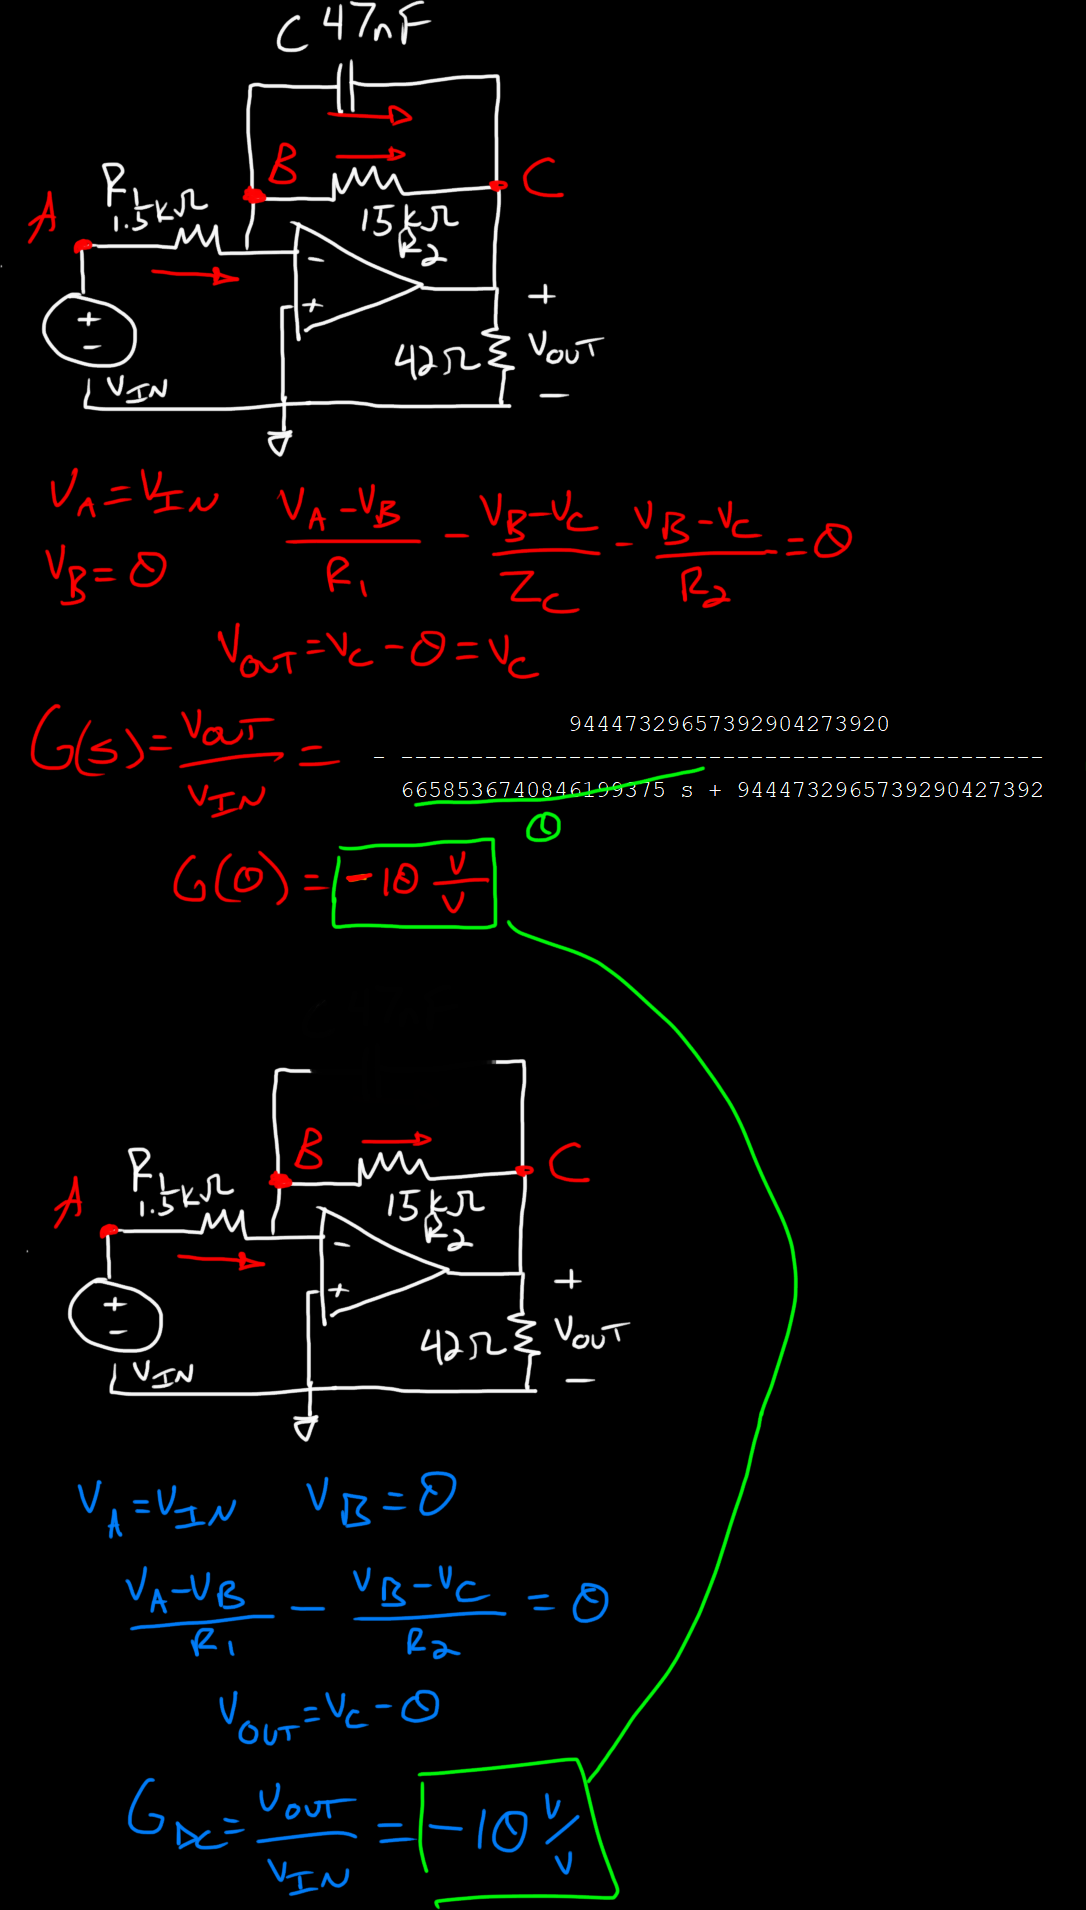 C 47nF
B
C
R1
1.5kΩ
A
15kΩ
R2
-
+
+
+
-
42Ω
VOUT
VIN
-
VA = VIN
(VA - VB)/R1 - (VB - VC)/ZC - (VB - VC)/R2 = 0
VB = 0
VOUT = VC - 0 = VC
G(s) = VOUT/VIN =
94447329657392904273920
- ----------------------------------------
6658536740846199375 s + 9444732965739290427392
0
G(0) = -10 V/V
B
C
R1
1.5kΩ
A
15kΩ
R2
-
+
+
+
-
42Ω
VOUT
VIN
-
VA = VIN VB = 0
(VA - VB)/R1 - (VB - VC)/R2 = 0
VOUT = VC - 0
GDC = VOUT/VIN = -10 V/V